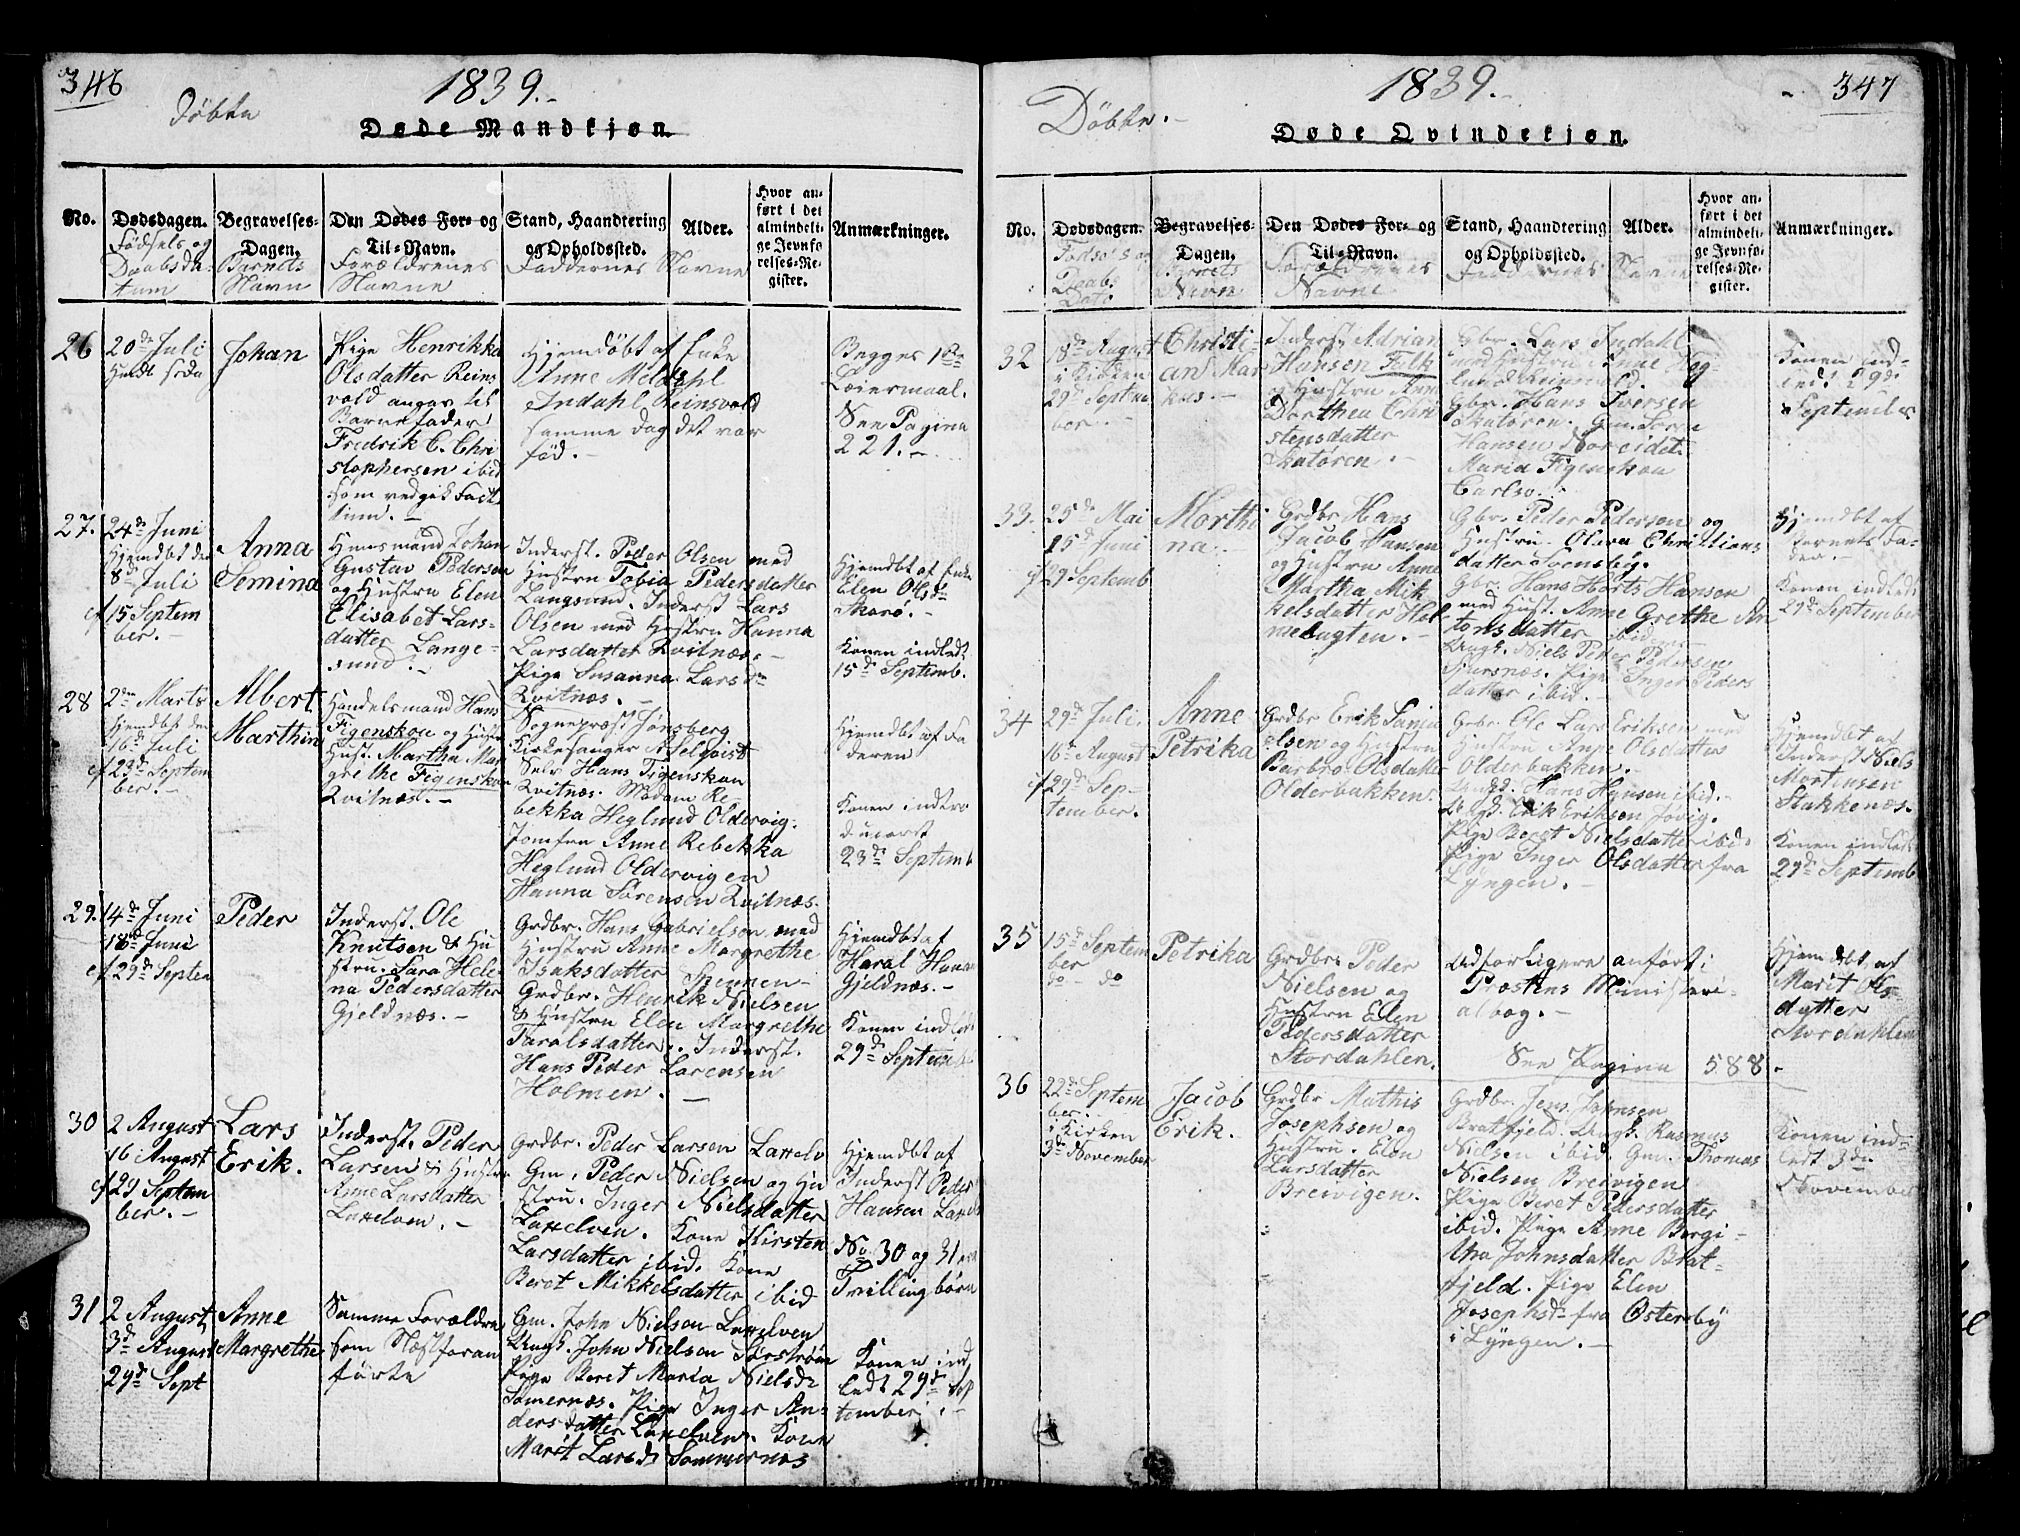 346
1839.-
Döbte
Døde Mandkjøn.
No.
Dødsdagen.
Fødsels og
Daabsda-
tum
Begravelses-
Dagen.
Barnets
Navn
Den Dødes For- og
Til-Navn.
Forældrenes
Navne
Stand, Haandtering
og Opholdssted.
Faddernes Navne
Alder.
Hvor an-
ført i det
almindeli-
ge Jevnfø-
relses-Re-
gister.
Anmærkninger.
26
20de Juli
Johan
Pige Henrikka
Olsdatter Reins
vold angav til
Barnefader
Fredrik C. Chri
stophersen ibid
som vedgik Fact
Hjemdöbt af Enke
Anne Meldahl
Indahl Reinsvold
samme Dag det var
fød.-
Begges 1ste
Leiermaal.
See Pagina
221.-
27.
24de Juni
Hjemdbt den
8de Juli
cf 15 Septem
ber.-
Anna
Semina
Huusmand Johan
Gustav Pedersen
og Hustru Elen
Elisabet Lars-
datter Lange-
sund.-
Inderst. Peder Olsen med
Hustru Tobia Pedersdatter
Langsund. Inderst Lars
Olsen med Hustru Hanna
Larsdatter Kvitnæs.-
Pige Susanna Larsdr
Kvitnæs.-
Hjemdbt af Enke
Elen Olsdr
Konen indledt
15de Septemb.
28
2den Marts
Hjemdbt den
16de Juli
cf 23de Septem
ber.-
Albert
Marthin
Handelsmand Hans
Figenskou og
Hust. Martha Mar
grethe Figenskou
Kvitnæs.-
Sognepræst Jönsberg
Kirkesanger Adelqvist
Selv Hans Figenskou
Kvitnæs. Madam Re-
bekka Heglund Oldervig.
Jomfru Anne Rebekka
Heglund Oldervigen
Hanna Sörensen Kvitnæs.
Hjemdbt af Fa
deren
Konen intro
duceret
23de Septemb
29.
14de Juni
18de Juni
cf 29de Septem
Peder
Inderst. Ole
Knutsen & Hu
stru. Sara Hele-
na Pedersdatter
Gjeldnæs.-
Grdbr. Hans Gabrielsen med
Hustru Anne Margrethe
Isaksdatter Spennen-
Grdbr. Henrik Nielsen
& Hustru Elen Margrethe
Taralsdatter. Inderst.
Hans Peder Larensen
Holmen.-
Hjemdbt af
Haral Hansen
Gjeldnæs.-
Konen indledt
29de Septemb
30
2 August
16 August
cf 29 Septem
ber.-
Lars
Erik.
Inderst. Peder
Larsen & Hustru
Anne Larsdatter
Laxelven.-
Grdbr. Peder Larsen Laxelv
Gm. Peder Nielsen og Hu
stru. Inger Nielsdatter
Laxelven. Kone Kirsten
Larsdatter ibid. Kone
Beret Mikkelsdatter ibid
Hjemdbt af
Inderst Peder
Hansen Laxelv
No 30 og 31 ere
Tvillingbörn
31
2 August
3de August
29de Sept
Anne
Margrethe
Samme Forældre
som Næstforan
førte
Gm. John Nielsen Laxelven
Ungk. John Nielsen Sörströmen
Pige Beret Maria Nielsdr
Sömernæs. Pige Inger An-
dersdatter Laxelven. Kone
Marit Larsdr Sommernæs
Konen ind
ledt 29de Sep
tember.-
347
1839.-
Döbte.-
Døde Qvindekjøn.
No.
Dødsdagen.
Fødsels og
Daabs
Dato
Begravelses-
Dagen.
Barnets
Navn
Den Dødes For- og
Til-Navn.
Forældrenes
Navne
Stand, Haandtering
og Opholdssted.
Faddernes Navne
Alder.
Hvor an-
ført i det
almindeli-
ge Jevnfø-
relses-Re-
gister.
Anmærkninger.
32
18de August
i Kirken
29de Septem
ber.-
Christi-
an Mar
kus.-
Inderst Adrian
Hansen Falk
og Hustru Ane
Dorthea Chri
stensdatter
Skatören.-
Gbr. Lars Indahl
med Hustru Anne Heg-
lund Reinsvold.
Gbr. Hans Iversen
Skatören. Gm. Sören
Hansen Noreidet.
Maria Figenskou
Carlsö.-
Konen ind-
ledt 29de
September
33.
25de Mai
15de Juni
cf 29 Septemb
Morthi
na.-
Grdbr Hans
Jacob Hansen
og Hustru Anne
Martha Mik
kelsdatter Hol
mebugten.-
Gbr. Peder Pedersen og
Hustru. Olava Christians
datter Svensby.
Gbr. Hans Horts Hansen
med Hust. Anne Grethe An
tonsdatter ibid
Ungk. Niels Peder Pedersen
Sjursnæs. Pige Inger Peders
datter ibid.-
Hjemdbt af
Barnets Fa-
der.-
Konen indledt
29de September
34
29de Juli.
16de August
cf 29de Sep-
tember.
Anne
Petrika
Grdbr Erik Danie
elsen og Hustru
Barbro Olsdatter
Olderbakken.
Grbr. Ole Lars Eriksen med
Hustru Anne Olsdatter
Olderbakken.-
Ungk. Hans Hansen ibid.-
Ungk. Erik Eriksen Jövig.
Pige Beret Nielsdatter ibid.
Pige Inger Olsdatter fra
Lÿngen.-
Hjemdbt af
Inderst Niels
Mortensen
Stakkenæs.
Konen indledt
29de Septemb
35
15de Septem
ber
do - do
Petrika
Grdbr. Peder
Nielsen og
Hustru Elen
Pedersdatter
Stordahlen.
Udförligere anfört i
Præstens Ministeri-
albog.-
See Pagina 588.
Hjemdbt af
Marit Ols-
datter
Stordahlen
36
22de Septem
ber.
i Kirken
3de November
Jacob
Erik.
Grdbr Mathis
Josephsen og
Hustru. Elen
Larsdatter
Breivigen.
Grdbr. Jens Johnsen
Bratfjeld. Ungk. Rasmus
Nielsen ibid. Gm. Thomas
Nielsen Breivigen
Pige Beret Pedersdatter
ibid. Pige Anne Bergi-
tha Johnsdatter Brat-
fjeld. Pige Elen
Josephsdr fra Ostereby
i Lÿngen.-
Konen ind-
ledt 3de
November